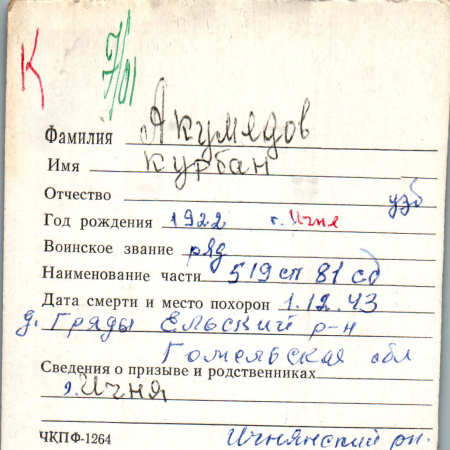 К
Фамилия Акумядов
Имя Курбан
Отчество узб
Год рождения 1922 г. Ичня
Воинское звание ряд
Наименование части 519 сп 81 сд
Дата смерти и место похорон 1.12.43
д. Гряды Ельский р-н
Гомельская обл
Сведения о призыве и родственниках
г. Ичня
ЧКПФ-1264 Ичнянский рн.